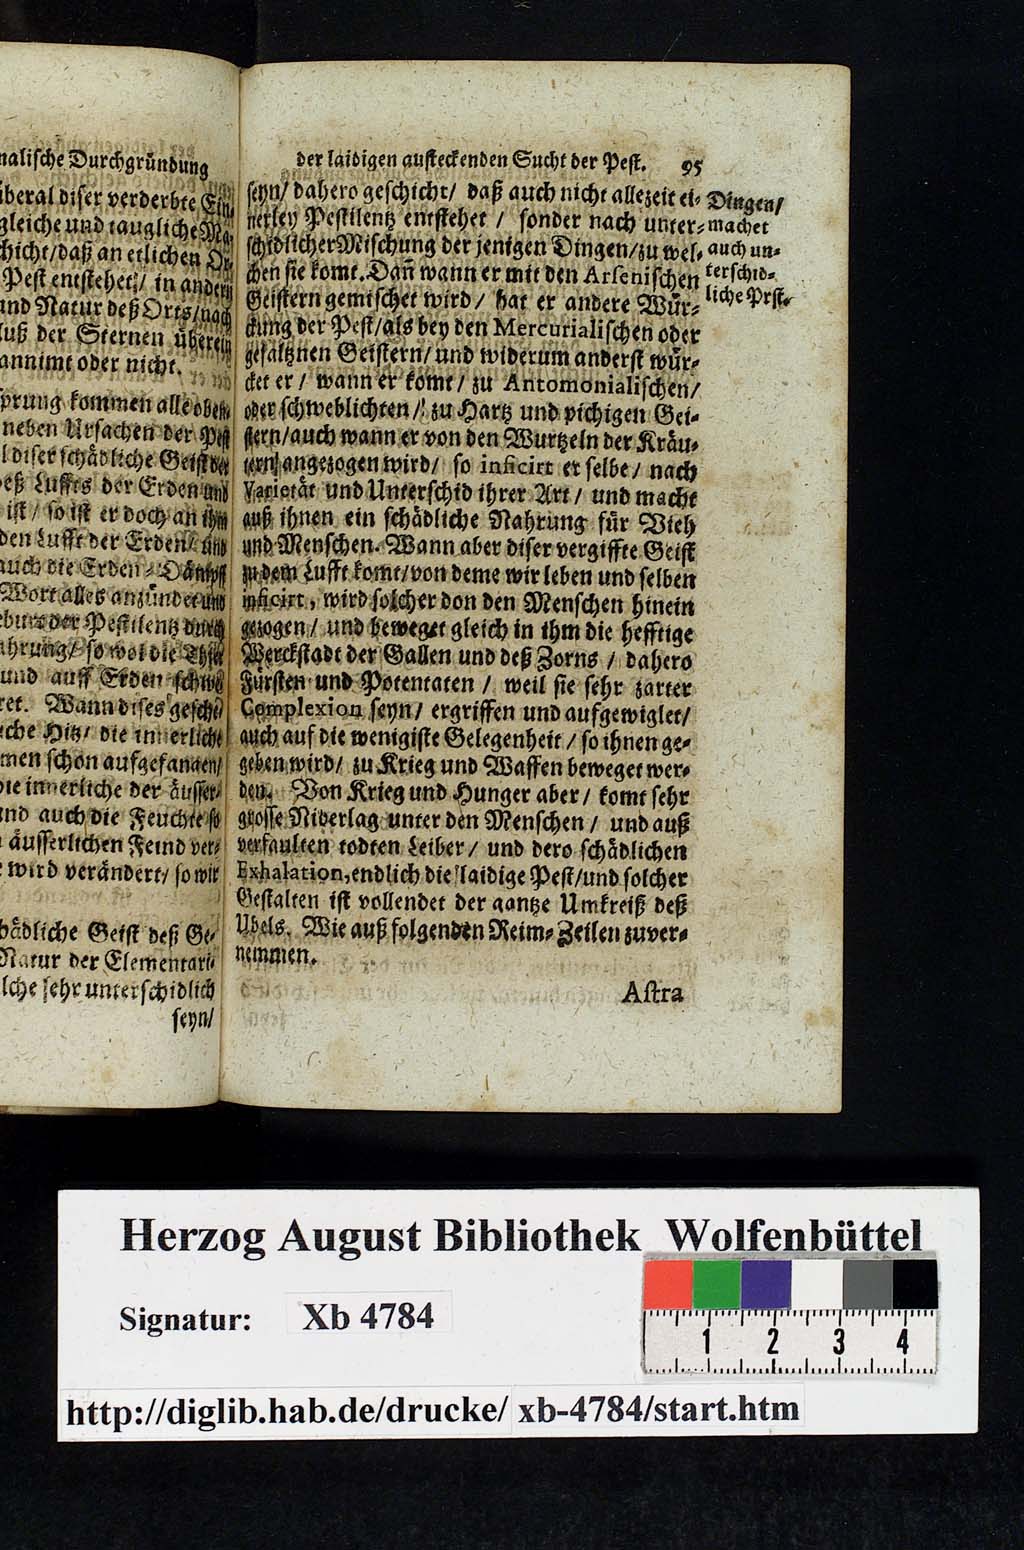 nalische Durchgründung
iberal diser verderbte Ein-
gleiche und taugliche Ma-
hicht/daß an etlichen Or-
Pest entstehet/ in andern
und Natur deß Orts/nach
luß der Sternen überein
annimt oder nicht.
sprung kommen alle oben-
neben Ursachen der Pest
l diser schädliche Geist der
eß Luffts der Erden und
ist/ so ist er doch an ihm
den Lufft der Erden/ und
auch die Erden-Dämpff
Wort alles anzündet und
eburt der Pestilentz durch
ahrung/ so wol die Thier
und auff Erden schwe
ret. Wann dises geschi-
iche Hitz/ die innerliche
men schon aufgefangen/
die innerliche der äusser-
und auch die Feuchte so
äusserlichen Feind ver-
wird verändert/ so wir
hädliche Geist deß Ge-
Natur der Elementari-
lche sehr unterschidlich
seyn/
der laidigen ansteckenden Sucht der Pest. 95
seyn/ dahero geschicht/ daß auch nicht allezeit ei-
nerley Pestilentz entstehet / sonder nach unter-
schidlicher Mischung der jenigen Dingen/zu wel-
chen sie komt. Dañ wann er mit den Arsenischen
Geistern gemischet wird/ hat er andere Wür-
ckung der Pest/als bey den Mercurialischen oder
gesaltznen Geistern/ und widerum anderst wür-
cket er/ wann er komt/ zu Antomonialischen/
oder schweblichten/ zu Hartz und pichigen Gei-
stern/auch wann er von den Wurtzeln der Kräu-
tern angezogen wird/ so inficirt er selbe/ nach
Varietät und Unterschid ihrer Art/ und macht
auß ihnen ein schädliche Nahrung für Vieh
und Menschen. Wann aber diser vergiffte Geist
zu dem Lufft komt/von deme wir leben und selben
inficirt, wird solcher don den Menschen hinein
gezogen/ und beweget gleich in ihm die hefftige
Werckstadt der Gallen und deß Zorns / dahero
Fürsten und Potentaten / weil sie sehr zarter
Complexion seyn/ ergriffen und aufgewiglet/
auch auf die wenigiste Gelegenheit / so ihnen ge-
geben wird/ zu Krieg und Waffen beweget wer-
den. Von Krieg und Hunger aber/ komt sehr
grosse Niderlag unter den Menschen / und auß
verfaulten todten Leiber/ und dero schädlichen
Exhalation, endlich die laidige Pest/und solcher
Gestalten ist vollendet der gantze Umkreiß deß
Ubels. Wie auß folgenden Reim-Zeilen zuver-
nemmen.
Astra
Dingen/
machet
auch un-
terschid-
liche Prst.
Herzog August Bibliothek Wolfenbüttel
Signatur: Xb 4784
1 2 3 4
http://diglib.hab.de/drucke/ xb-4784/start.htm